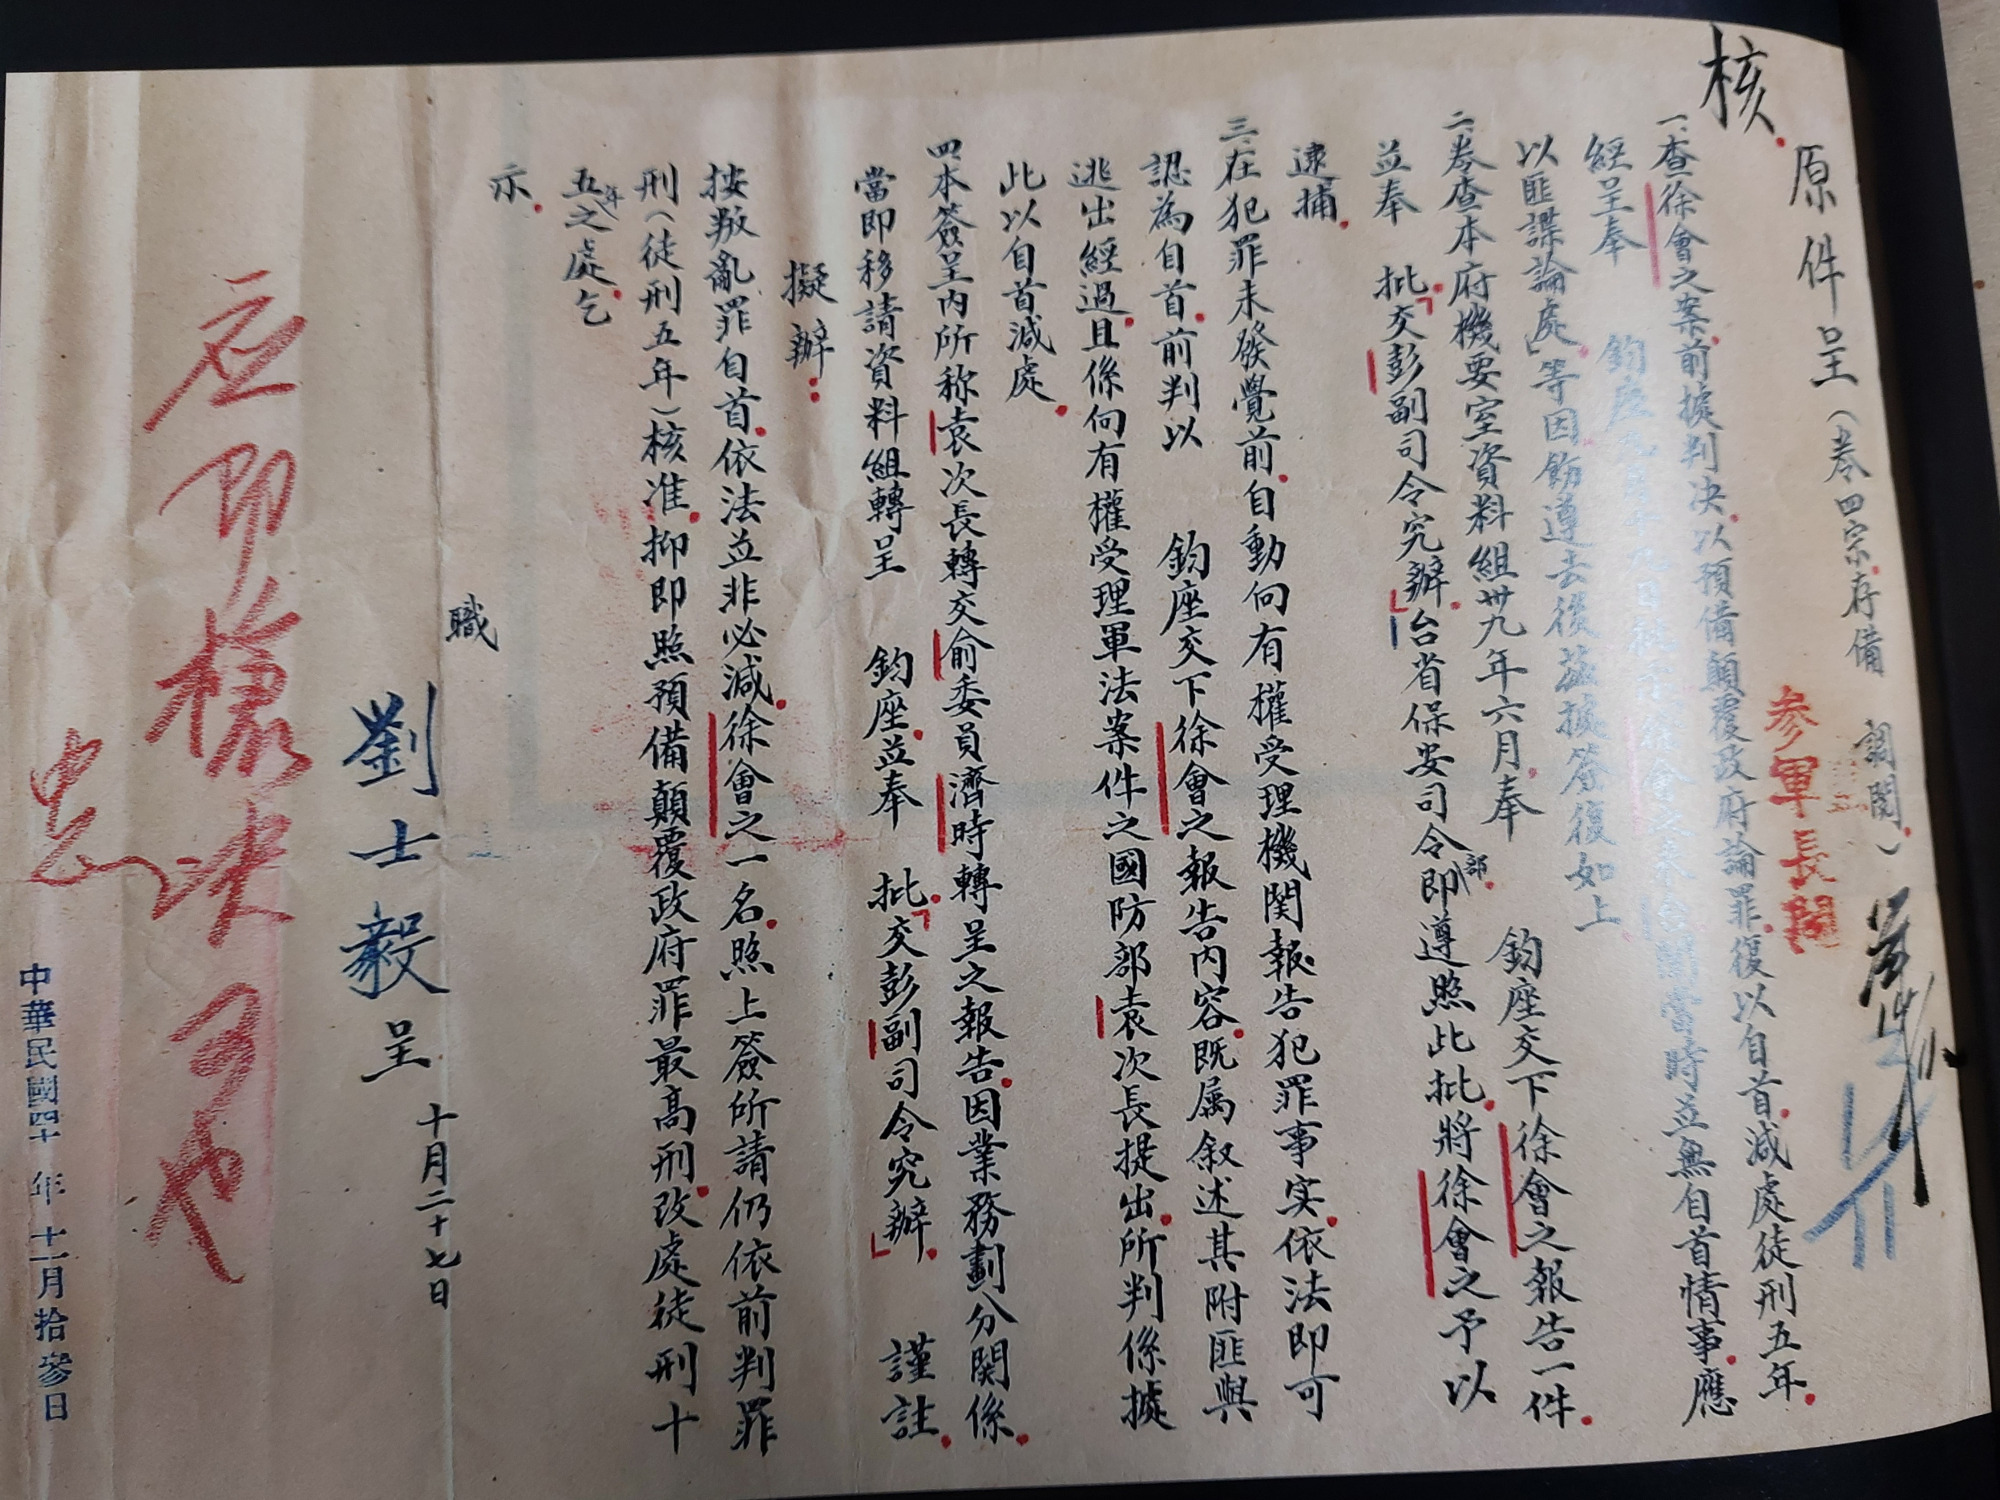 核
原件呈（卷四宗存備 調閱）
參軍長閱
一、查徐會之案前據判決以預備顛覆政府論罪復以自首減處徒刑五年
經呈奉 鈞座
時並無自首情事應
以匪諜論處」等因飭遵去後茲據簽復如上
二、卷查本府機要室資料組卅九年六月奉 鈞座交下徐會之報告一件
並奉 批「交彭副司令究辦」台省保安司令部即遵照此批將徐會之予以
逮捕
三、在犯罪未發覺前自動向有權受理機関報告犯罪事实依法即可
認為自首前判以 鈞座交下徐會之報告內容既属叙述其附匪與
逃出經過且係向有權受理軍法案件之國防部袁次長提出所判係據
此以自首減處
四、本簽呈內所称袁次長轉交俞委員濟時轉呈之報告因業務劃分関係
當即移請資料組轉呈 鈞座並奉 批「交彭副司令究辦」 謹註
擬辦：
按叛亂罪自首依法並非必減徐會之一名照上簽所請仍依前判罪
刑（徒刑五年）核准抑即照預備顛覆政府罪最高刑改處徒刑十
五年之處乞
示
職
劉士毅呈 十月二十七日
应即槍决可也
中華民國四十年十一月拾參日